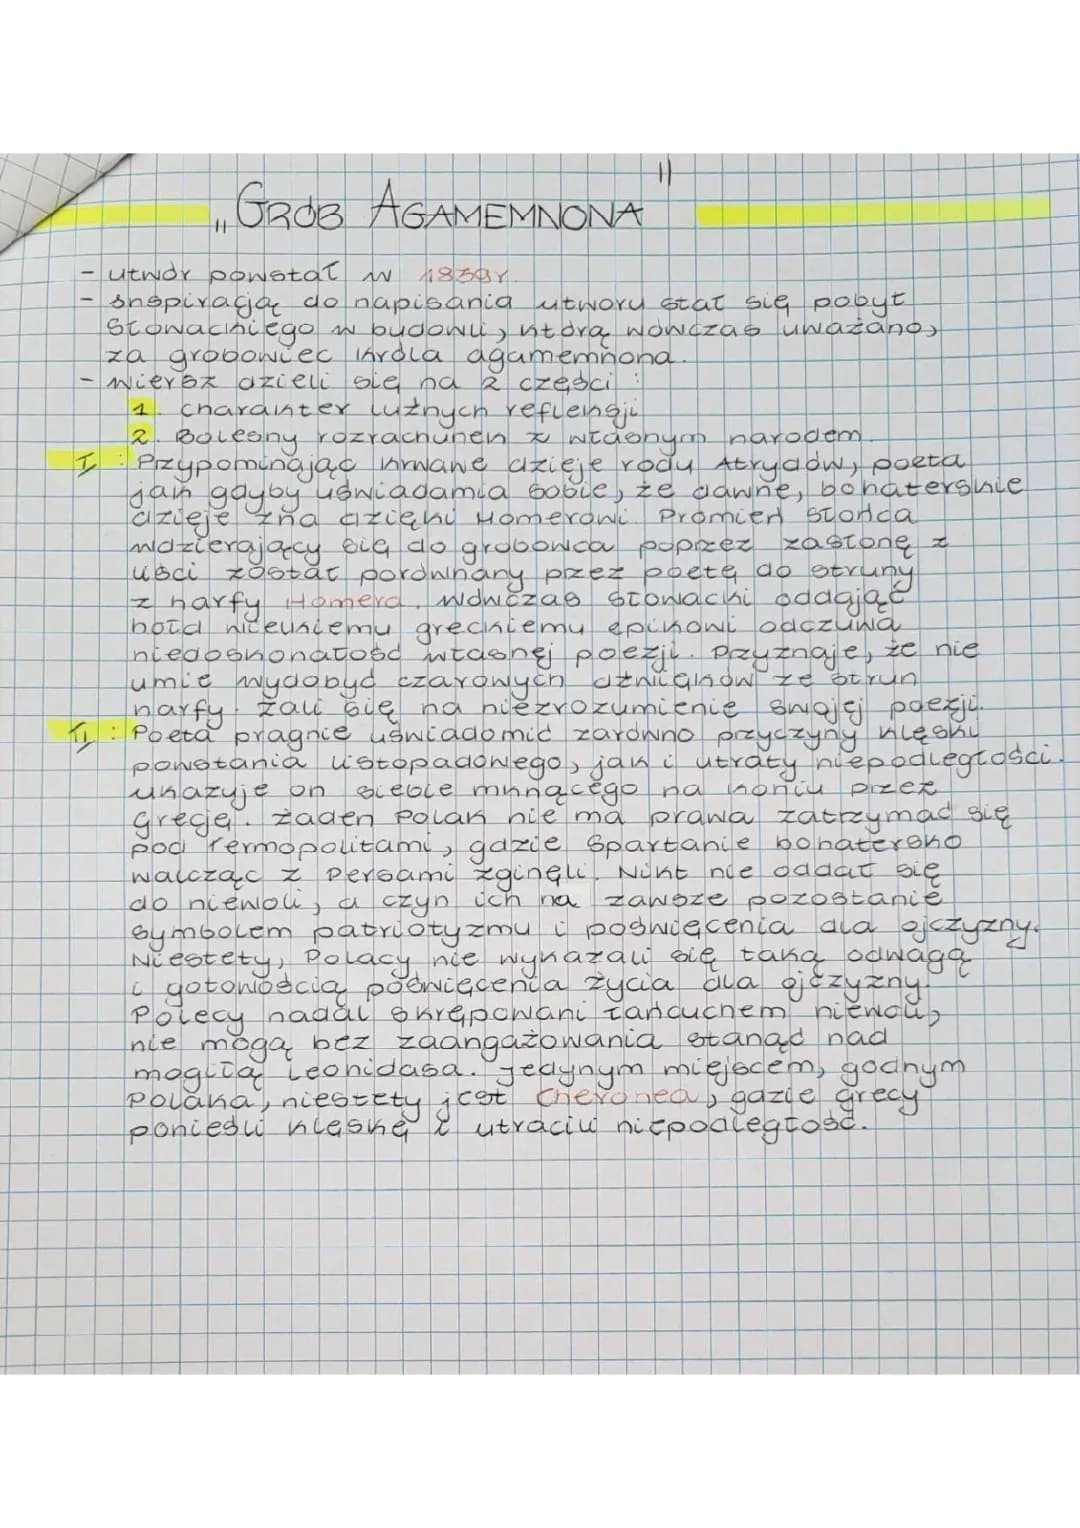 „GRÓB AGAMEMNONA"
- utwór powstał w 1839r.
- inspiracją do napisania utworu stał się pobyt
Słowackiego w budowli, którą wówczas uważano,
za grobowiec króla agamemnona.
- wiersz dzieli się na 2 części :
1. charakter luźnych refleksji
2. Bolesny rozrachunek z własnym narodem.
I : Przypominając krwawe dzieje rodu Atrydów, poeta
jak gdyby uświadamia sobie, że dawne, bohaterskie
dzieje zna dzięki Homerowi. Promień słońca
wdzierający się do grobowca poprzez zasłonę z
liści został porównany przez poetę do struny
z harfy Homera. Wówczas Słowacki oddając
hołd wielkiemu greckiemu epikowi odczuwa
niedoskonałość własnej poezji. Przyznaje, że nie
umie wydobyć czarowych dźwięków ze strun
harfy. Żali się na niezrozumienie swojej poezji.
II : Poeta pragnie uświadomić zarówno przyczyny klęski
powstania listopadowego, jak i utraty niepodległości.
Ukazuje on siebie mknącego na koniu przez
Grecję. Żaden Polak nie ma prawa zatrzymać się
pod Termopolitami, gdzie Spartanie bohatersko
walcząc z Persami zginęli. Nikt nie oddał się
do niewoli, a czyn ich na zawsze pozostanie
symbolem patriotyzmu i poświęcenia dla ojczyzny.
Niestety, Polacy nie wykazali się taką odwagą
i gotowością poświęcenia życia dla ojczyzny.
Polecy nadal skrępowani łańcuchem niewoli,
nie mogą bez zaangażowania stanąć nad
mogiłą Leonidasa. Jedynym miejscem, godnym
Polaka, niestety jest Cheronea, gdzie grecy
ponieśli klęskę i utracili niepodległość.